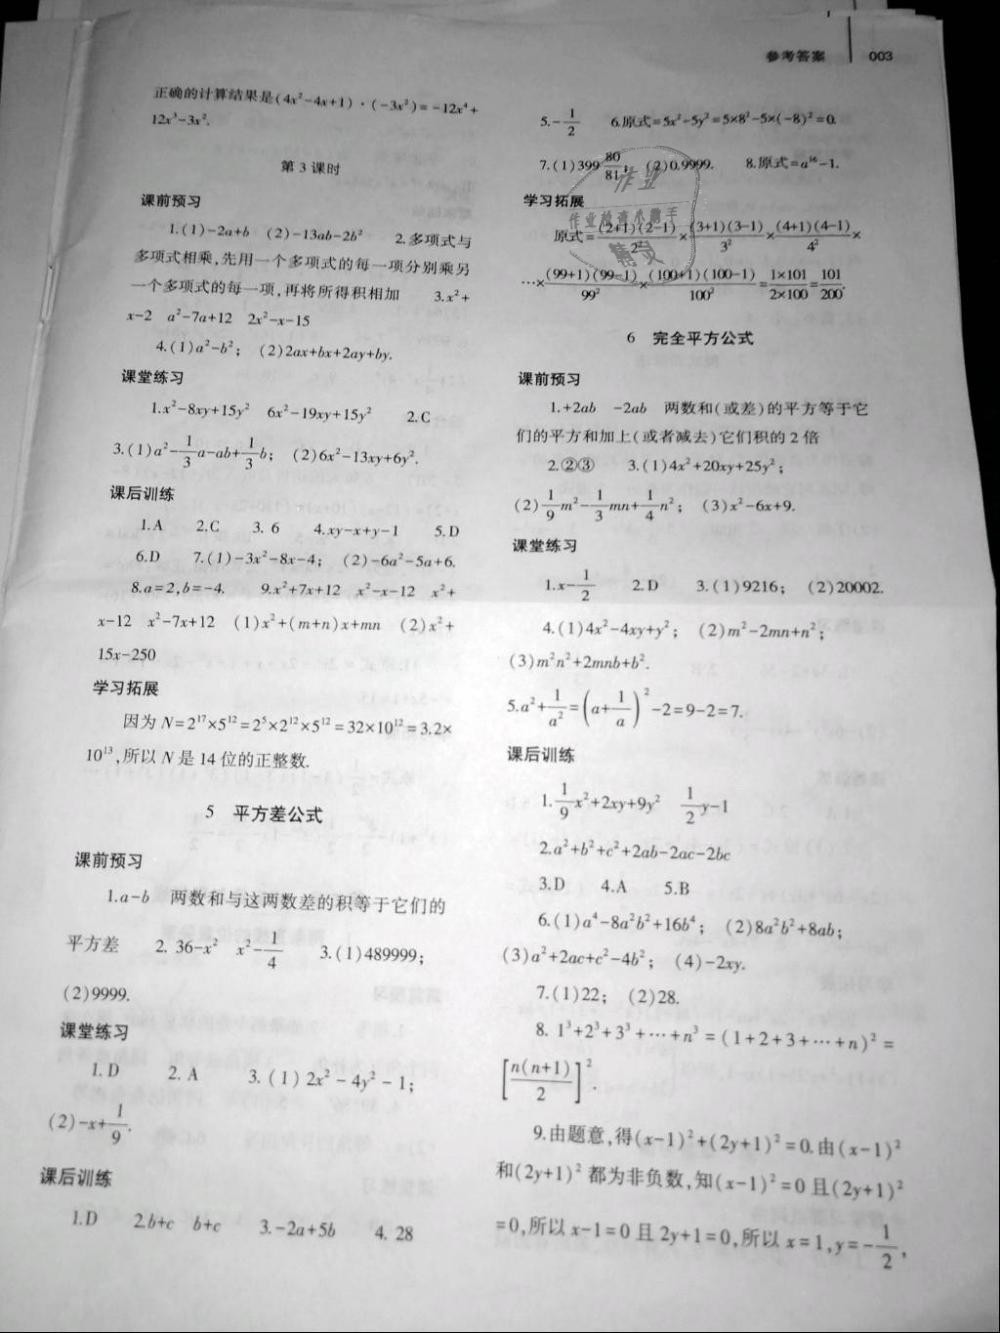 参考答案 003
正确的计算结果是(4x²-4x+1)·(-3x²)=-12x⁴+
12x³-3x².
第 3 课时
课前预习
1.(1)-2a+b (2)-13ab-2b² 2.多项式与
多项式相乘,先用一个多项式的每一项分别乘另
一个多项式的每一项,再将所得积相加 3.x²+
x-2 a²-7a+12 2x²-x-15
4.(1)a²-b²; (2)2ax+bx+2ay+by.
课堂练习
1.x²-8xy+15y² 6x²-19xy+15y² 2.C
3.(1)a²-1/3a-ab+1/3b; (2)6x²-13xy+6y².
课后训练
1.A 2.C 3.6 4.xy-x+y-1 5.D
6.D 7.(1)-3x²-8x-4; (2)-6a²-5a+6.
8.a=2,b=-4. 9.x²+7x+12 x²-x-12 x²+
x-12 x²-7x+12 (1)x²+(m+n)x+mn (2)x²+
15x-250
学习拓展
因为 N=2¹⁷×5¹²=2⁵×2¹²×5¹²=32×10¹²=3.2×
10¹³,所以 N 是 14 位的正整数.
5 平方差公式
课前预习
1.a-b 两数和与这两数差的积等于它们的
平方差 2.36-x² x²-1/4 3.(1)489999;
(2)9999.
课堂练习
1.D 2.A 3.(1)2x²-4y²-1;
(2)-x+1/9.
课后训练
1.D 2.b+c b+c 3.-2a+5b 4.28
5.-1/2 6.原式=5x²-5y²=5×8²-5×(-8)²=0.
7.(1)399 80/81; (2)0.9999. 8.原式=a¹⁶-1.
学习拓展
原式=(2+1)(2-1)/2²×(3+1)(3-1)/3²×(4+1)(4-1)/4²×
…×(99+1)(99-1)/99²×(100+1)(100-1)/100²=1×101/2×100=101/200.
6 完全平方公式
课前预习
1.+2ab -2ab 两数和(或差)的平方等于它
们的平方和加上(或者减去)它们积的 2 倍
2.②③ 3.(1)4x²+20xy+25y²;
(2)1/9m²-1/3mn+1/4n²; (3)x²-6x+9.
课堂练习
1.x-1/2 2.D 3.(1)9216; (2)20002.
4.(1)4x²-4xy+y²; (2)m²-2mn+n²;
(3)m²n²+2mnb+b².
5.a²+1/a²=(a+1/a)²-2=9-2=7.
课后训练
1.1/9x²+2xy+9y² 1/2y-1
2.a²+b²+c²+2ab-2ac-2bc
3.D 4.A 5.B
6.(1)a⁴-8a²b²+16b⁴; (2)8a²b²+8ab;
(3)a²+2ac+c²-4b²; (4)-2xy.
7.(1)22; (2)28.
8. 1³+2³+3³+…+n³=(1+2+3+…+n)²=
[n(n+1)/2]².
9.由题意,得(x-1)²+(2y+1)²=0.由(x-1)²
和(2y+1)²都为非负数,知(x-1)²=0且(2y+1)²
=0,所以 x-1=0 且 2y+1=0,所以 x=1,y=-1/2,